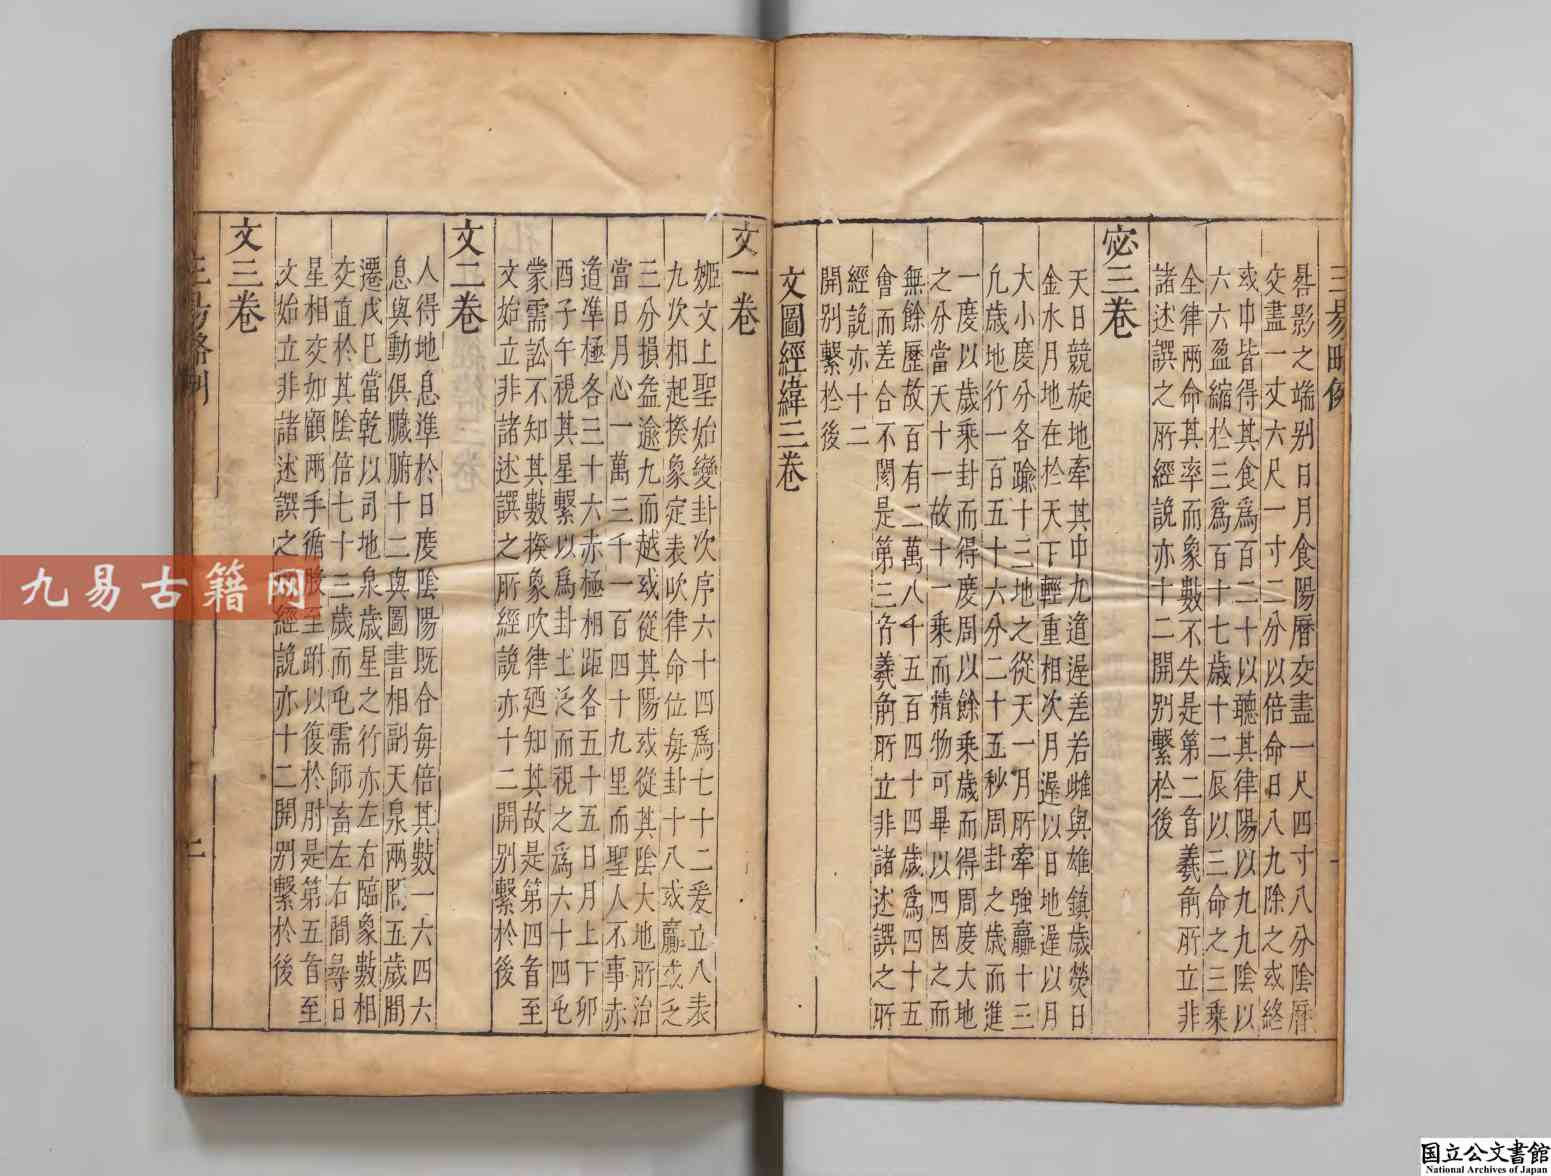 三易略例
晷影之端别日月食陽曆交盡一尺四寸八分陰曆
交盡一丈六尺一寸二分以倍命日八九除之或終
或中皆得其食爲百二十以聽其律陽以九九陰以
六六盈縮於三爲百十七歲十二辰以三命之三乘
全律兩命其率而象數不失是第二㫖羲前所立非
諸述譔之所經說亦十二開别繫於後
宓三卷
天日競旋地牽其中九道遲差若雌與雄鎮歲熒日
金水月地在於天下輕重相次月遲以日地遲以月
大小度分各踰十三地之從天一月所牽強贏十三
凢歲地行一百五十六分二十五秒周卦之歲而進
一度以歲乘卦而得度周以餘乘歲而得周度大地
之分當天十一故十一乘而精物可畢以四因之而
無餘歷故百有二萬八千五百四十四歲爲四十五
會而差合不閏是第三㫖羲前所立非諸述譔之所
經說亦十二
開别繫於後
文圖經緯三卷
文一卷
姬文上聖始變卦次序六十四爲七十二爰立八表
九次相起揆象定表吹律命位每卦十八或贏或乏
三分損益逾九而越或從其陽或從其陰大地所治
當日月心一萬三千一百四十九里而聖人不事赤
道準極各三十六赤極相距各五十五日月上下卯
酉子午視其星繫以爲卦土泛而視之爲六十四屯
蒙需訟不知其數揆象吹律廼知其故是第四㫖至
文始立非諸述譔之所經說亦十二開别繫於後
文二卷
人得地息準於日度陰陽既合每倍其數一六四六
息與動俱臟腑十二與圖書相副天泉兩間五歲間
遷戊巳當乾以司地泉歲星之行亦左右臨象數相
交直於其陰倍七十三歲而屯需師畜左右間尋日
星相交如顧兩手循股至跗以復於肘是第五㫖至
文始立非諸述譔之所經說亦十二開别繫於後
文三卷
三易略例
二
九易古籍网
国立公文書館
National Archives of Japan